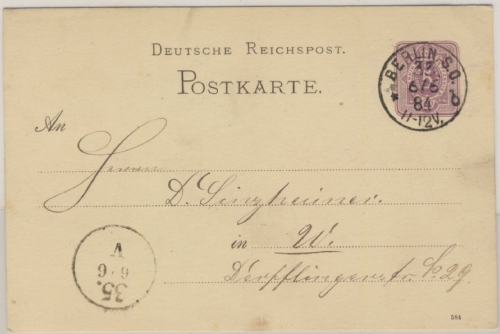 DEUTSCHE REICHSPOST.
POSTKARTE.
BERLIN S.O.
33
6/6
84
11-12V.
An
Herrn
D. Sinzheimer.
in W.
Derfflingerstr. No. 29
V
6.6
35.
584